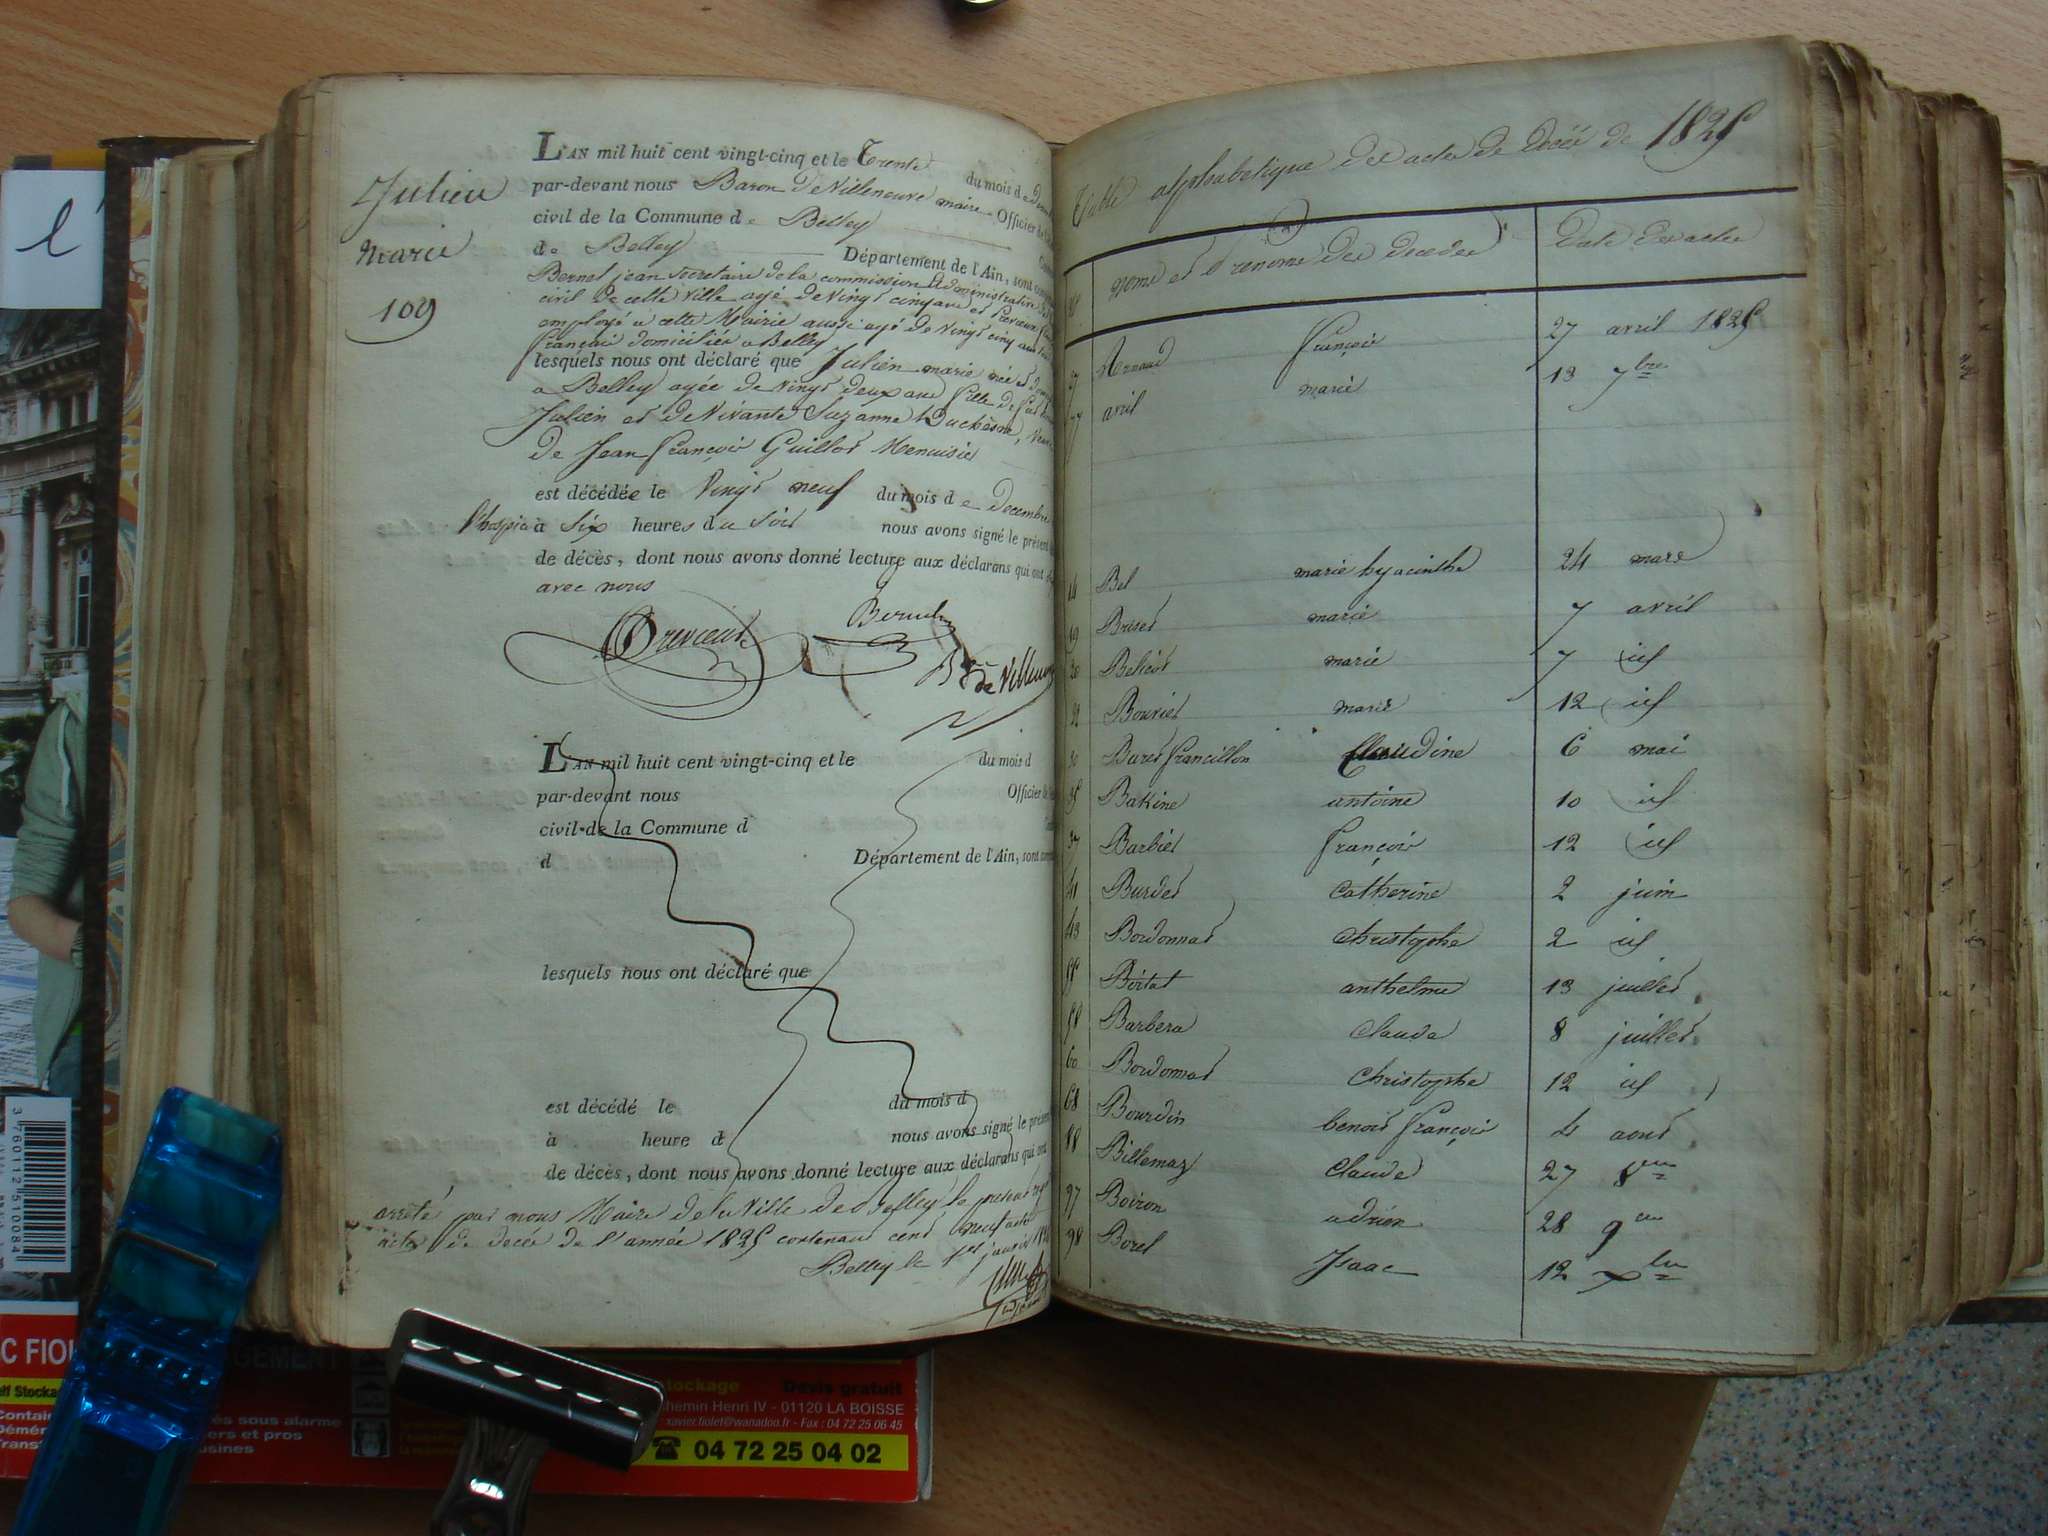 l
Julien
marie
109
L'AN mil huit cent vingt-cinq et le Trente du mois de
par-devant nous Baron de Villeneuve maire Officier
civil de la Commune de Belley
de Belley Département de l'Ain, sont
Bernet jean secretaire de la commission administrative
civil de cette ville agé de vingt cinq ans et
employé a cette Mairie aussi agé de vingt cinq ans
français domiciliés a Belley
lesquels nous ont déclaré que Julien marie née et
a Belley agée de vingt deux ans fille de
Julien et de vivante Suzanne Duchêsne,
de Jean françois Guillot Menuisier
est décédée le Vingt neuf du mois de Decembre
l'hospice à six heures du soir nous avons signé le présent
de décès, dont nous avons donné lecture aux déclarans qui ont
avec nous
Bernet
de Villeneuve
L'AN mil huit cent vingt-cinq et le du mois d
par-devant nous Officier
civil de la Commune d
d Département de l'Ain, sont
lesquels nous ont déclaré que
est décédé le du mois d
à heure d nous avons signé le présent
de décès, dont nous avons donné lecture aux déclarans qui ont
arrêté par nous Maire de la Ville de Belley le present
actes de décès de l'année 1825 contenant cent neuf actes
Belley le 1er janvier
Table alphabetique des actes de décès de 1825
noms et Prenoms des decedes Date des actes
27 Arnaud françois 27 avril 1825
77 avril marie 13 7bre
14 Bel marie hyacinthe 24 mars
19 Briset marie 7 avril
20 Beliot marie 7 id
22 Bouvier marie 12 id
30 Baret francillon Claudine 6 mai
35 Bakine antoine 10 id
37 Barbier françois 12 id
41 Burdet Catherine 2 juin
43 Bordonnat Christophe 2 id
55 Bertat anthelme 13 juillet
58 Barbera Claude 8 juillet
60 Bordonnat Christophe 12 id
68 Bourdin benoit françois 4 aout
88 Billemaz Claude 27 8bre
97 Boiron adrien 28 9bre
98 Borel Isaac 12 xbre
3 760112 510084
C FIOL GEMENT
elf Stocka stockage Devis gratuit
chemin Henri IV - 01120 LA BOISSE
xavier.fiolet@wanadoo.fr - Fax : 04 72 25 06 45
04 72 25 04 02
Contai
Démé
Transf
és sous alarme
iers et pros
usines